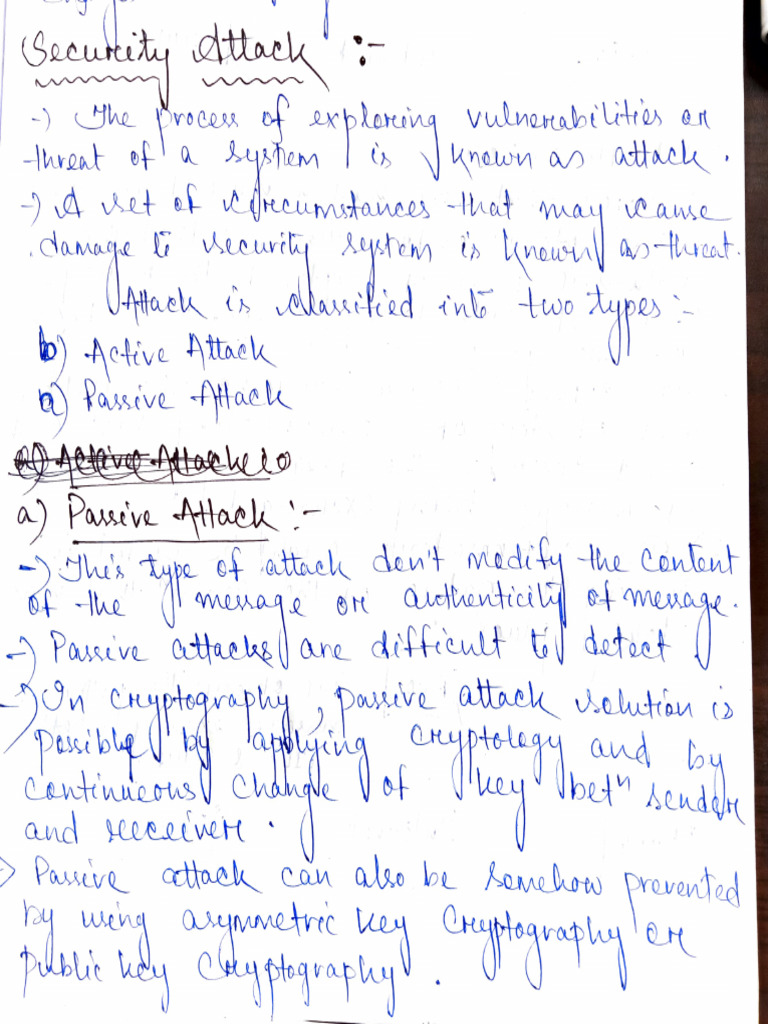 Security Attack :-
-) The process of exploring vulnerabilities or
threat of a system is known as attack.
-) A set of circumstances that may cause
damage to security system is known as threat.
Attack is classified into two types :-
b) Active Attack
a) Passive Attack
a) Active Attack
a) Passive Attack :-
-) This type of attack don't modify the content
of the message or authenticity of message.
-) Passive attacks are difficult to detect
-) In cryptography, passive attack solution is
possible by applying cryptology and by
continueous change of key betⁿ sender
and receiver.
Passive attack can also be somehow prevented
by using asymmetric key cryptography or
public key cryptography.